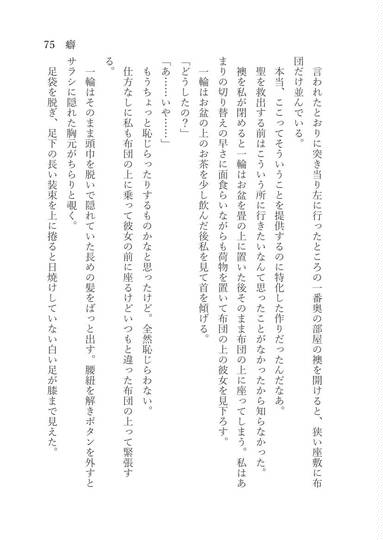 75 癖
言われたとおりに突き当り左に行ったところの一番奥の部屋の襖を開けると、狭い座敷に布
団だけ並んでいる。
本当、ここってそういうことを提供するのに特化した作りだったんだなあ。
聖を救出する前はこういう所に行きたいなんて思ったことがなかったから知らなかった。
襖を私が閉めると一輪はお盆を畳の上に置いた後そのまま布団の上に座ってしまう。私はあ
まりの切り替えの早さに面食らいながらも荷物を置いて布団の上の彼女を見下ろす。
一輪はお盆の上のお茶を少し飲んだ後私を見て首を傾げる。
「どうしたの？」
「あ……いや……」
もうちょっと恥じらったりするものかなと思ったけど。全然恥じらわない。
仕方なしに私も布団の上に乗って彼女の前に座るけどいつもと違った布団の上って緊張す
る。
一輪はそのまま頭巾を脱いで隠れていた長めの髪をばっと出す。腰紐を解きボタンを外すと
サラシに隠れた胸元がちらりと覗く。
足袋を脱ぎ、足下の長い装束を上に捲ると日焼けしていない白い足が膝まで見えた。